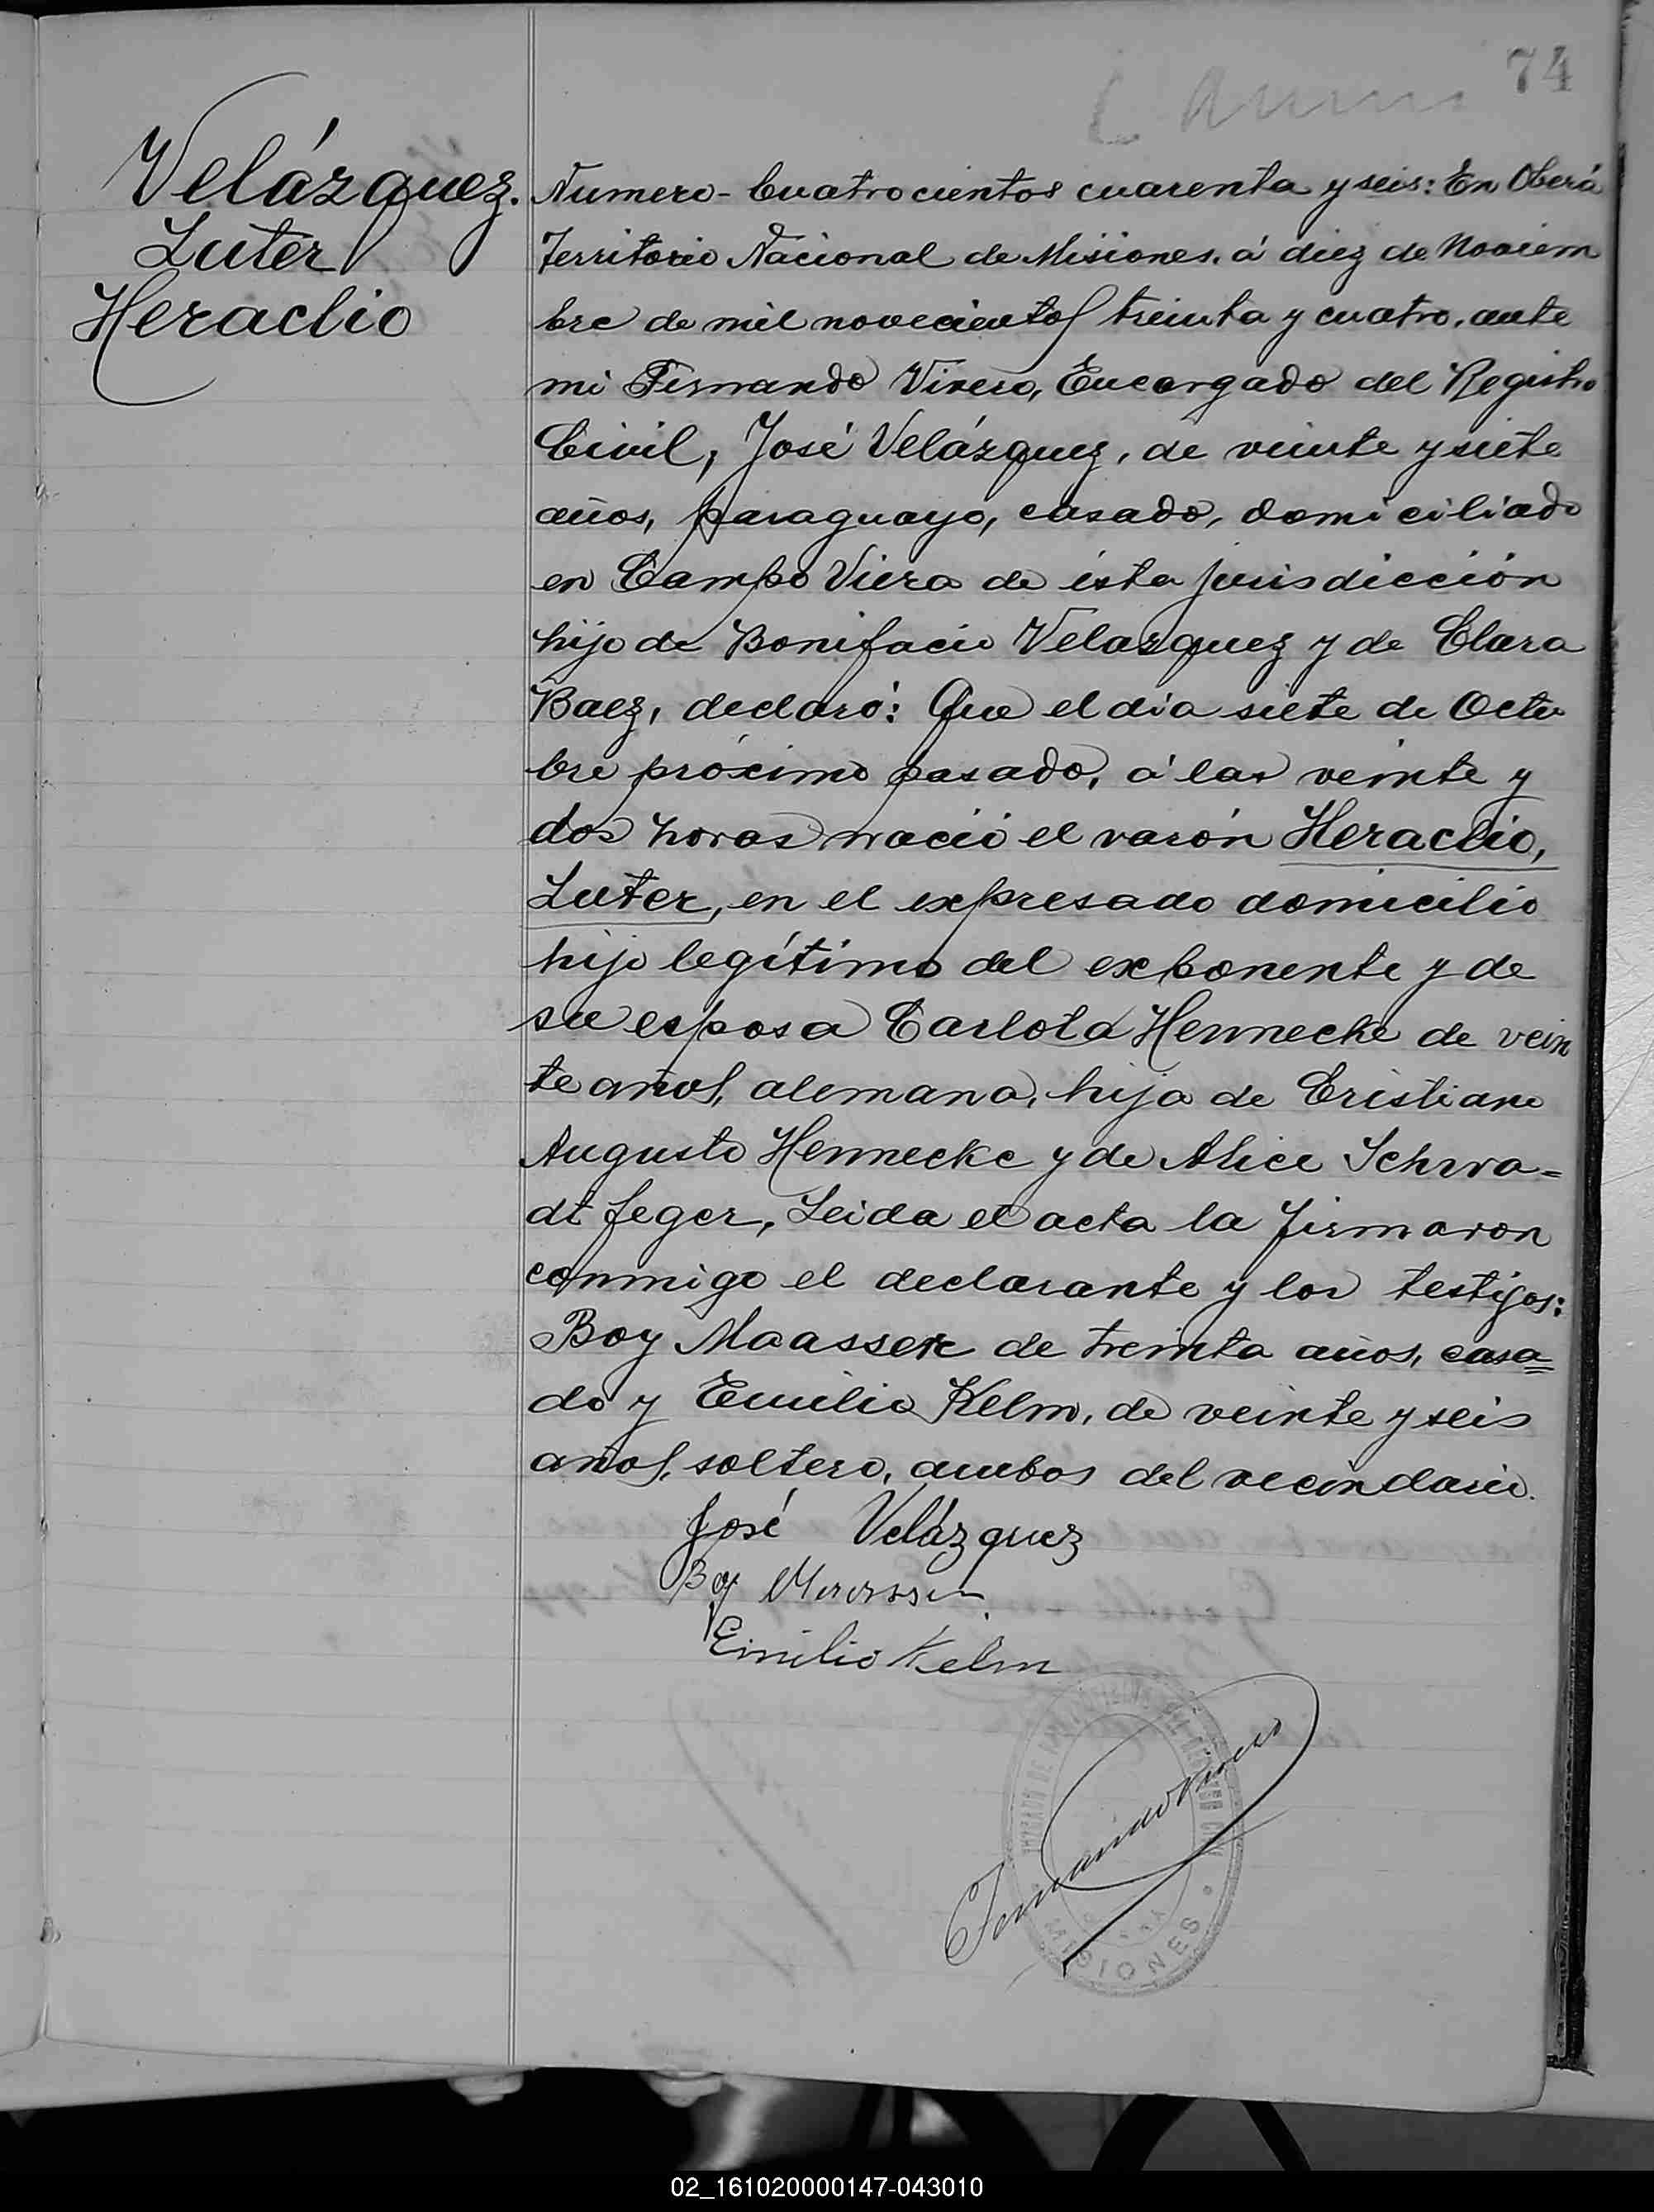 74
Velázquez.
Luter
Heraclio
Numero - Cuatrocientos cuarenta y seis: En Oberá
Territorio Nacional de Misiones, á diez de Noviem
bre de mil novecientos treinta y cuatro, ante
mi Fernando Vivero, Encargado del Registro
Civil, José Velázquez, de veinte y siete
años, paraguayo, casado, domiciliado
en Campo Viera de ésta jurisdicción
hijo de Bonifacio Velazquez y de Clara
Baez, declaró: Que el día siete de Octu
bre próximo pasado, á las veinte y
dos horas nació el varón Heraclio,
Luter, en el expresado domicilio
hijo legítimo del exponente y de
su esposa Carlota Hennecke de vein
te años, alemana, hija de Cristiano
Augusto Hennecke y de Alice Schwa=
dt feger, Leida el acta la firmaron
conmigo el declarante y los testigos:
Boy Maassen de treinta años, casa=
do y Emilio Kelm, de veinte y seis
años, soltero, ambos del vecindario.
José Velázquez
Boy Maassen
Emilio Kelm
Fernando Vivero
MISIONES
02_161020000147-043010